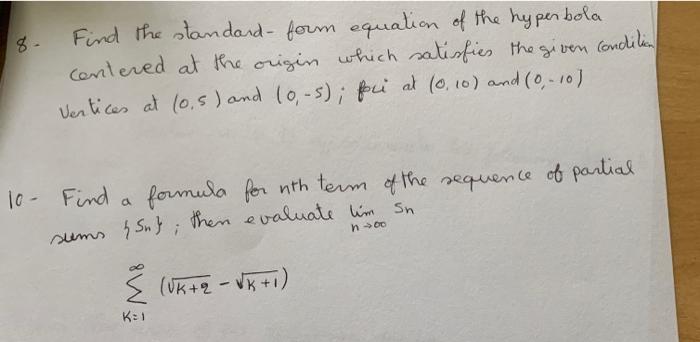 8- Find the standard-form equation of the hyperbola
centered at the origin which satisfies the given condition
Vertices at (0,5) and (0,-5); foci at (0,10) and (0,-10)
10- Find a formula for nth term of the sequence of partial
sums {Sn}; then evaluate lim n→∞ Sn
∞
Σ (√K+2 - √K+1)
K=1